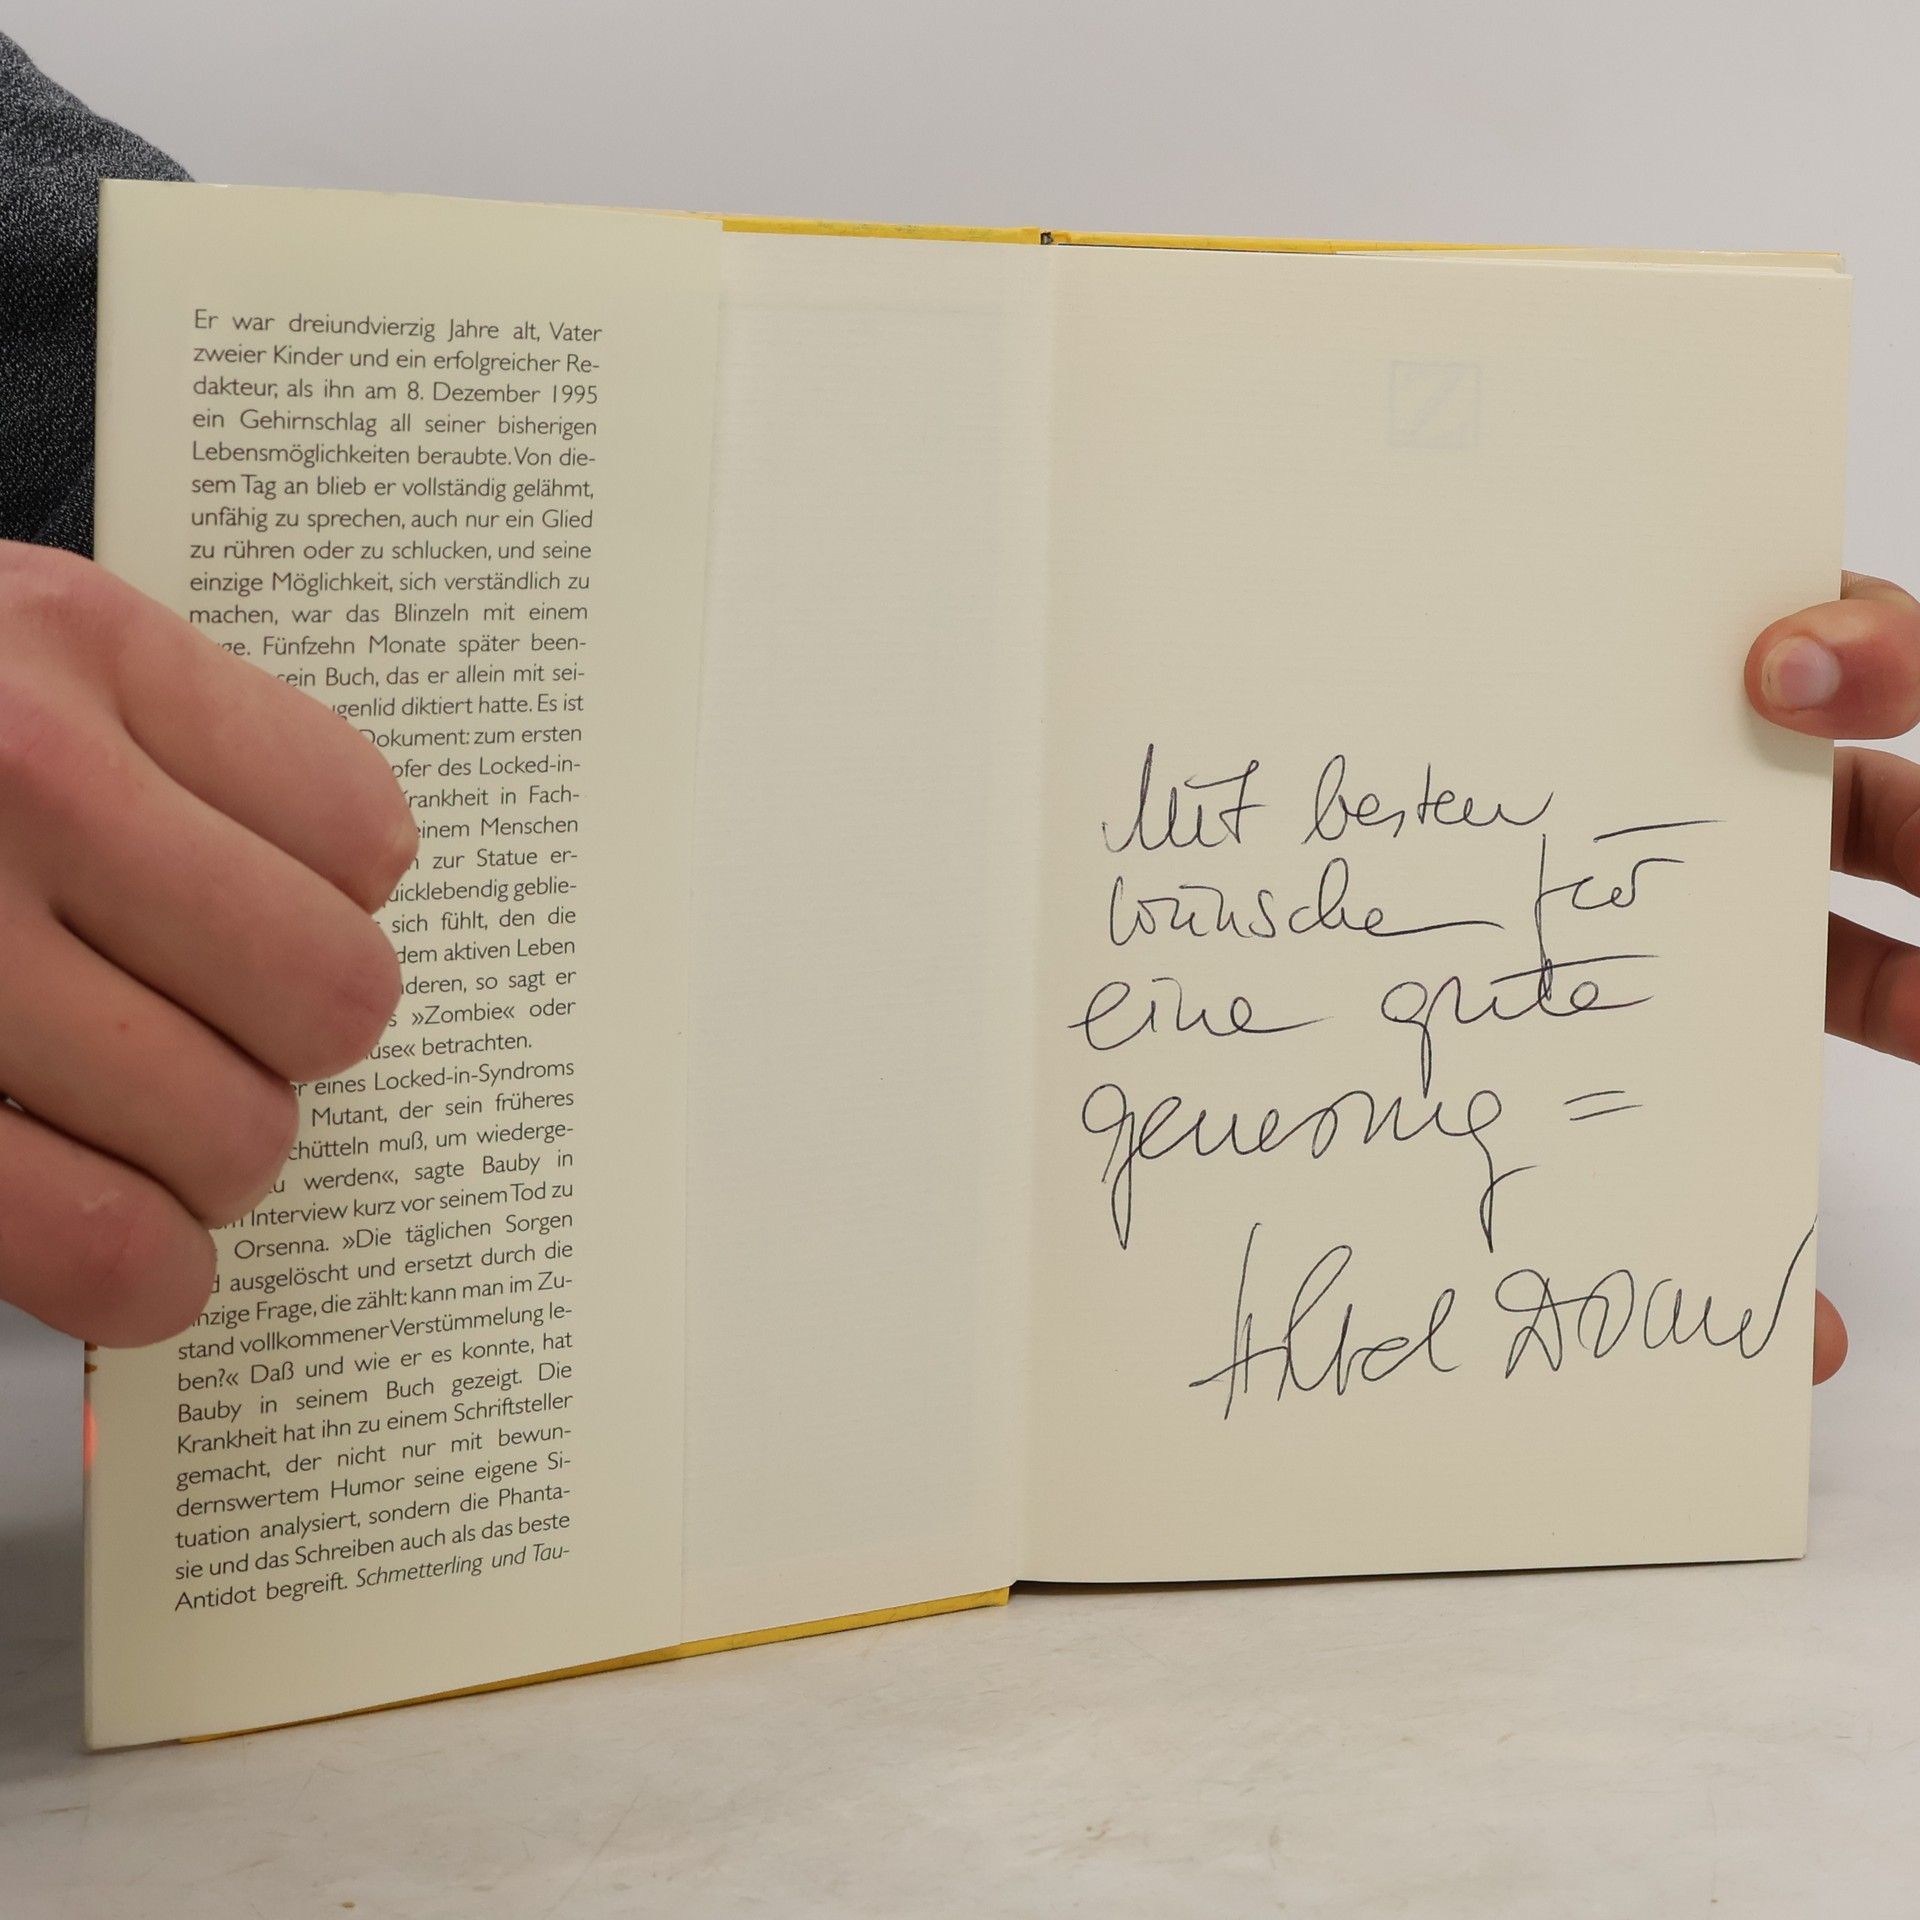 Er war dreiundvierzig Jahre alt, Vater
zweier Kinder und ein erfolgreicher Re-
dakteur, als ihn am 8. Dezember 1995
ein Gehirnschlag all seiner bisherigen
Lebensmöglichkeiten beraubte. Von die-
sem Tag an blieb er vollständig gelähmt,
unfähig zu sprechen, auch nur ein Glied
zu rühren oder zu schlucken, und seine
einzige Möglichkeit, sich verständlich zu
machen, war das Blinzeln mit einem
ge. Fünfzehn Monate später been-
sein Buch, das er allein mit sei-
genlid diktiert hatte. Es ist
Dokument: zum ersten
pfer des Locked-in-
rankheit in Fach-
einem Menschen
zur Statue er-
uicklebendig geblie-
sich fühlt, den die
dem aktiven Leben
deren, so sagt er
»Zombie« oder
üse« betrachten.
er eines Locked-in-Syndroms
Mutant, der sein früheres
chütteln muß, um wiederge-
zu werden«, sagte Bauby in
Interview kurz vor seinem Tod zu
Orsenna. »Die täglichen Sorgen
d ausgelöscht und ersetzt durch die
nzige Frage, die zählt: kann man im Zu-
stand vollkommener Verstümmelung le-
ben?« Daß und wie er es konnte, hat
Bauby in seinem Buch gezeigt. Die
Krankheit hat ihn zu einem Schriftsteller
gemacht, der nicht nur mit bewun-
dernswertem Humor seine eigene Si-
tuation analysiert, sondern die Phanta-
sie und das Schreiben auch als das beste
Antidot begreift. Schmetterling und Tau-
Mit besten
wünschen für
eine gute
genesung =